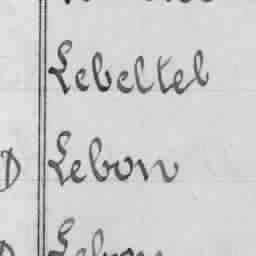 Lebeltel
D Lebon